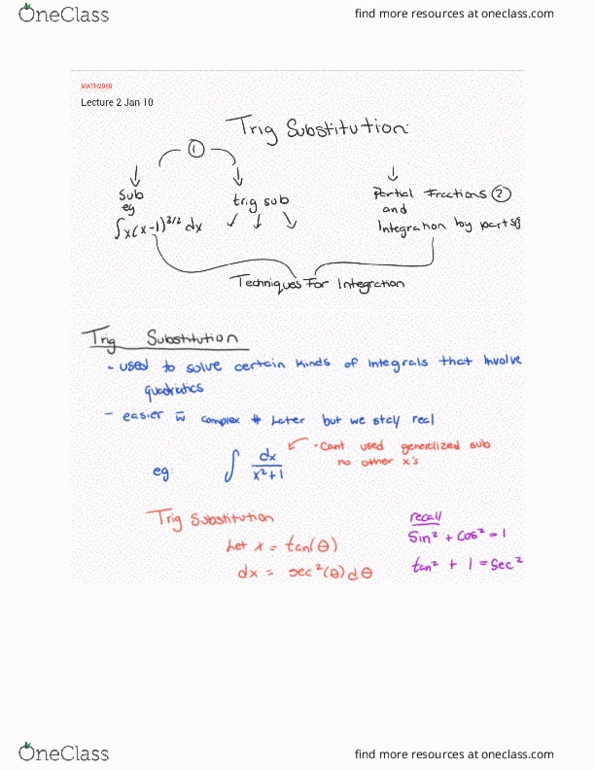 OneClass
find more resources at oneclass.com
MATH2000
Lecture 2 Jan 10
Trig Substitution:
①
Sub
eg
∫x(x-1)^3/2 dx
trig sub
Partial Fractions ②
and
Integration by parts③
Techniques For Integration
Trig Substitution
- used to solve certain kinds of integrals that involve
quadratics
- easier w̄ complex # later but we stay real
eg ∫ dx/x²+1
- Cant used generalized sub
no other x's
Trig Substitution
Let x = tan(θ)
dx = sec²(θ)dθ
recall
Sin² + Cos² = 1
tan² + 1 = Sec²
OneClass
find more resources at oneclass.com